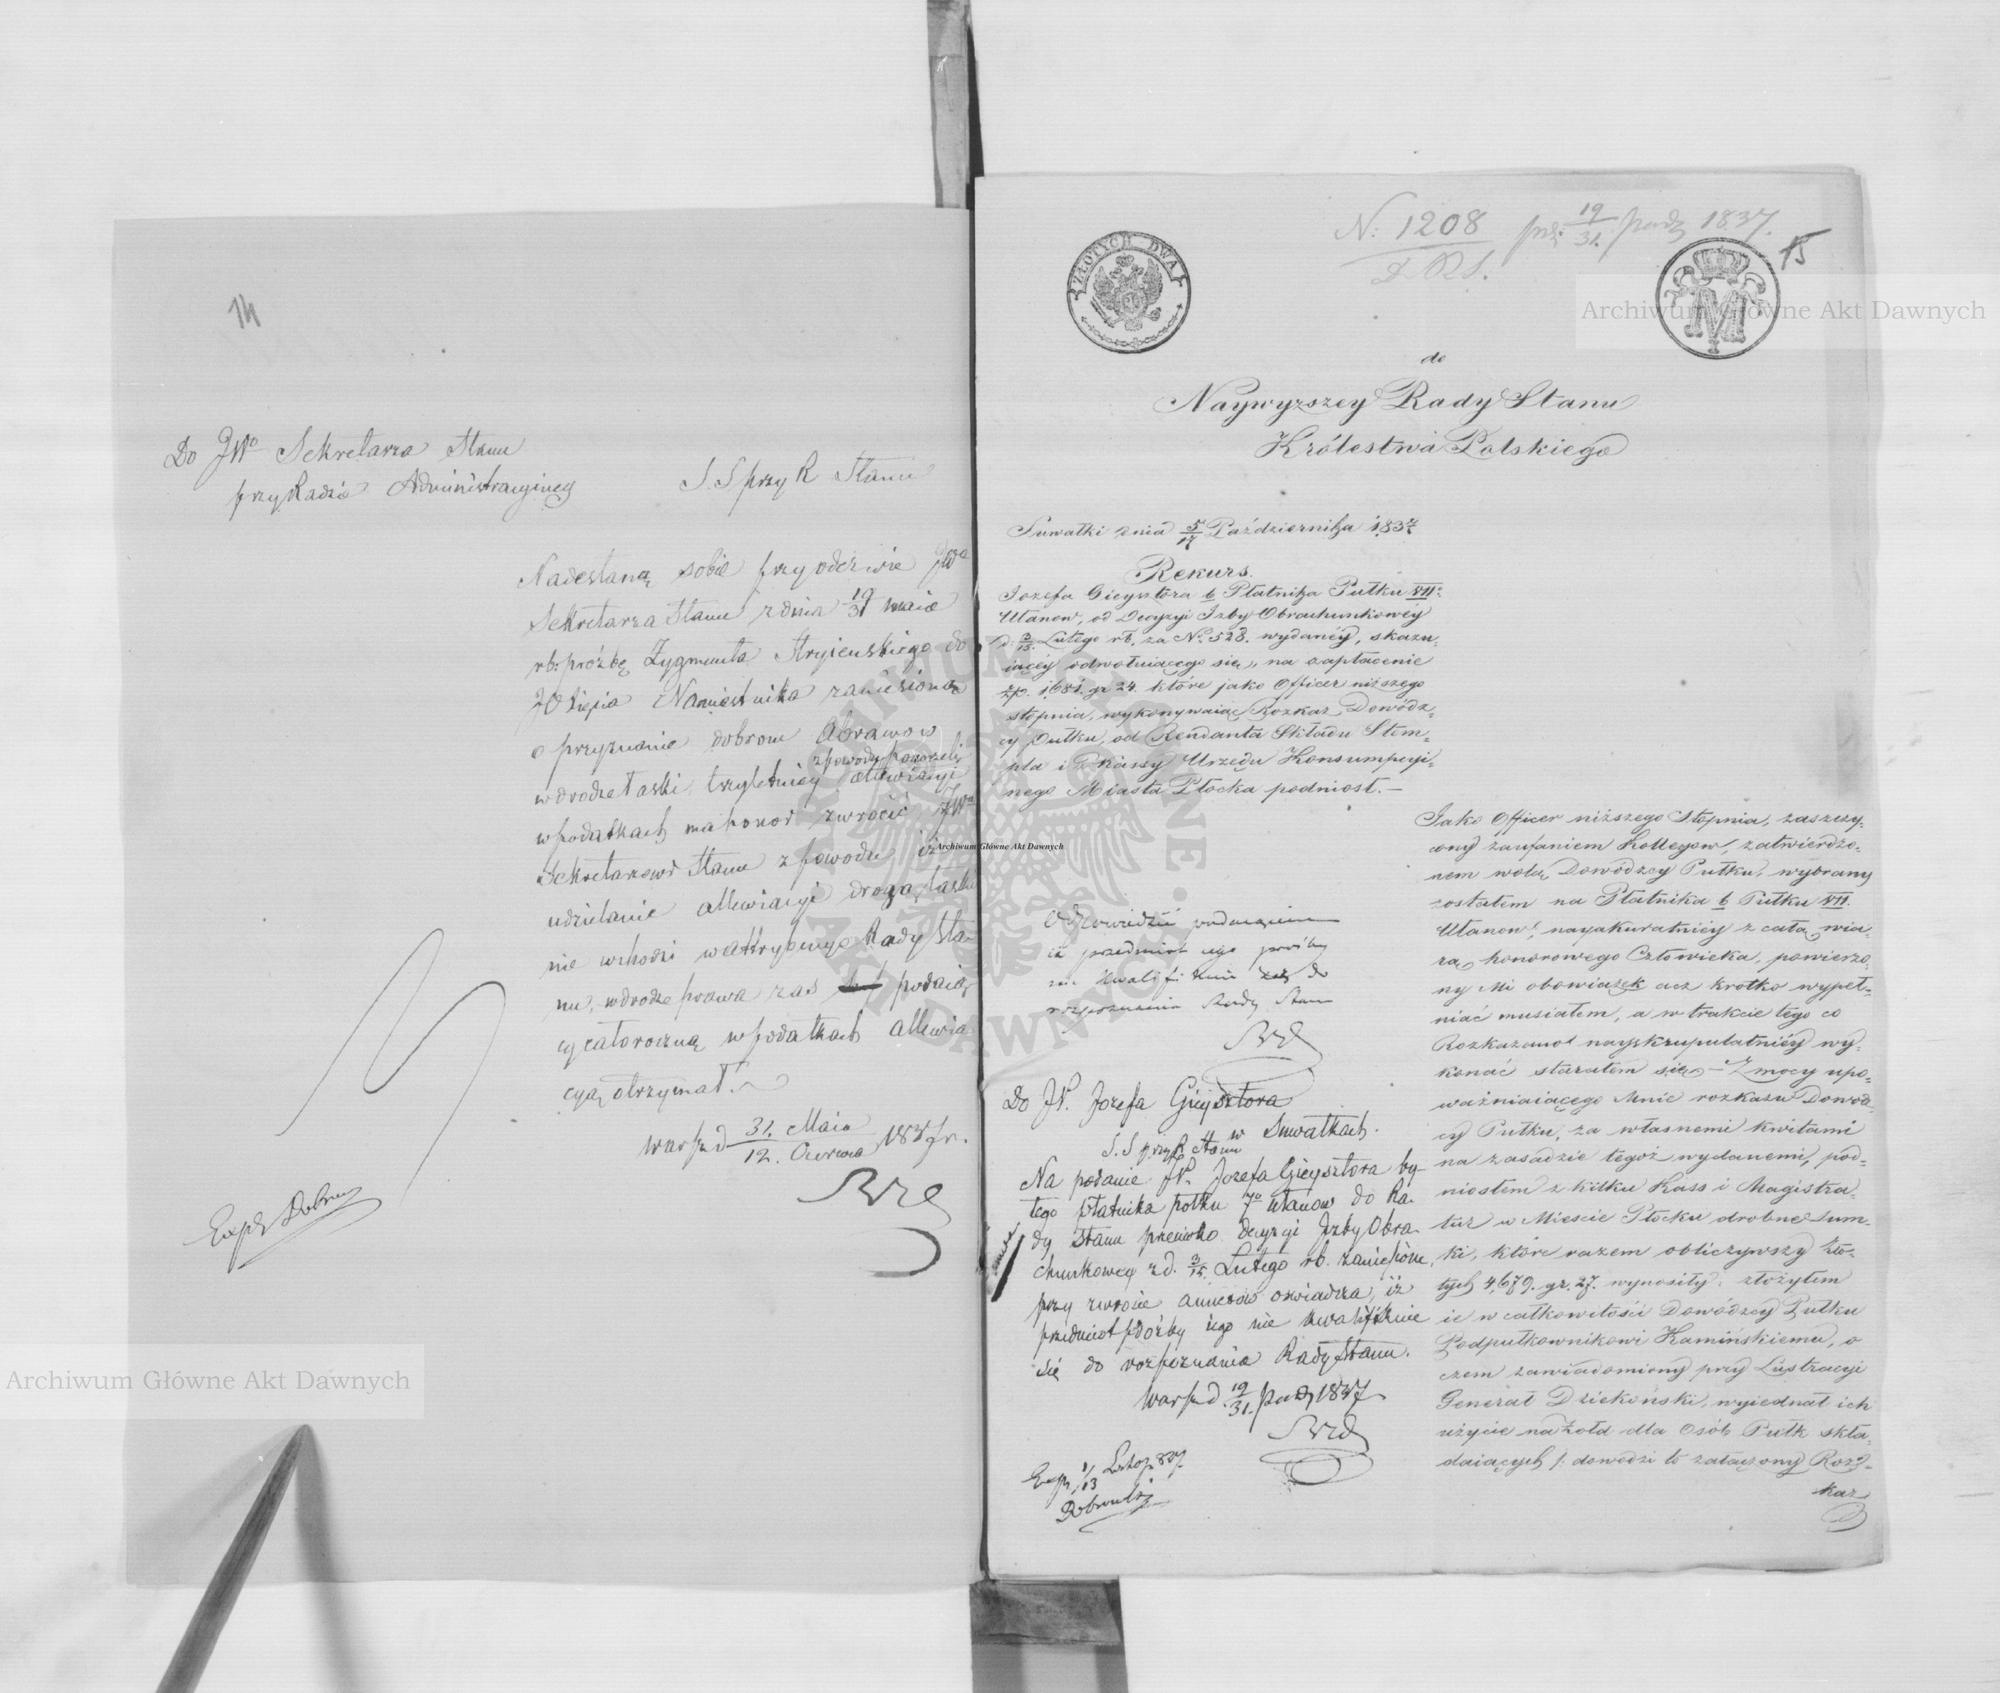 14
Do JWo Sekretarza Stanu
przy Radzie Administracyiney
S. S przy R Stanu
Nadesłaną sobie przy odezwie JWo
Sekretarza Stanu z dnia 19/31 maia
rb. prózbę Zygmunta Stryienskiego do
XOsięcia Namiestnika zaniesioną
o przyznanie dobrom Abramow
z powodu pogorzeli
w drodze łaski trzyletniey allewiacyi
w podatkach ma honor zwrocić JWu
Sekretarzowi Stanu z powodu iż
udzielanie allewiacyi drogą łaski
nie wchodzi w attrybucye Rady Sta-
nu, w drodze prawa zas podaią
cy całoroczną w podatkach allewia
cyą otrzymał.
Warsz d 31. Maia / 12. Czerwca 1837 r.
Exp
N: 1208 prz: 19/31. paźdz 1837.
15
ZŁOTYCH DWA
M
I
do
Naywyzszey Rady Stanu
Królestwa Polskiego
Suwałki dnia 5/17 Października 1837
Rekurs.
Jozefa Gieysztora b Płatnika Pułku VII.
Ułanow, od Decyzyi Izby Obrachunkowéy
d: 3/15 Lutego rb. za No 528. wydanéy, skazu-
iącéy odwołuiącego się, na zapłacenie
złp. 1681. gr 24. które jako Officer niższego
stopnia, wykonywaiąc Rozkaz Dowódz-
cy Pułku, od Rendanta Składu Stem-
pla i Kassy Urzędu Konsumpcyi-
nego Miasta Płocka podniosł. —
Odpowiedzić podaiącemu
iż przedmiot iego prośby
nie kwalifikuie się do
rozpoznania Rady Stanu
Do JW. Jozefa Gieysztora
w Suwałkach.
S. S przy R Stanu
Na podanie JW. Jozefa Gieysztora by-
łego płatnika pułku 7o ułanow do Ra-
dy Stanu przeciwko decyzyi Izby Obra
chunkowey z d. 3/15 Lutego rb. zaniesione,
przy zwrocie annexów oświadcza, iż
przedmiot proźby iego nie kwalifikuie
się do rozpoznania Rady Stanu.
Warsz d. 19/31. paźdz 1837
Exp 1/13 Listop 837.
Jako Officer niższego Stopnia, zaszczy-
cony zaufaniem Kollegow, zatwierdzo-
nem wolą Dowódzcy Pułku, wybrany
zostałem na Płatnika b Pułku VII.
Ułanow, nayakuratniéy z całą wia-
rą honorowego Człowieka, powierzo-
ny Mi obowiązek acz krotko wypeł-
niać musiałem, a w trakcie tego co
Rozkazano nayskrupulatniéy wy-
konać starałem się — Z mocy upo-
ważniaiącego Mnie rozkazu Dowód-
cy Pułku, za własnemi kwitami
na zasadzie tegoż wydanemi, pod-
niosłem z kilku Kass i Magistra-
tur w Mieście Płocku drobne Sum-
ki, które razem obliczywszy Zło-
tych 4,679. gr. 27. wynosiły. złożyłem
ie w całkowitości Dowódzcy Pułku
Podpułkownikowi Kamińskiemu, o
czem zawiadomiony przy Lustracyi
Generał Dziekoński, wyiednał ich
użycie na Żołd dla Osób Pułk skła-
daiących /: dowodzi to załączony Roz-
kaz
Archiwum Główne Akt Dawnych
Archiwum Główne Akt Dawnych
Archiwum Główne Akt Dawnych
ARCHIWUM GŁÓWNE AKT DAWNYCH